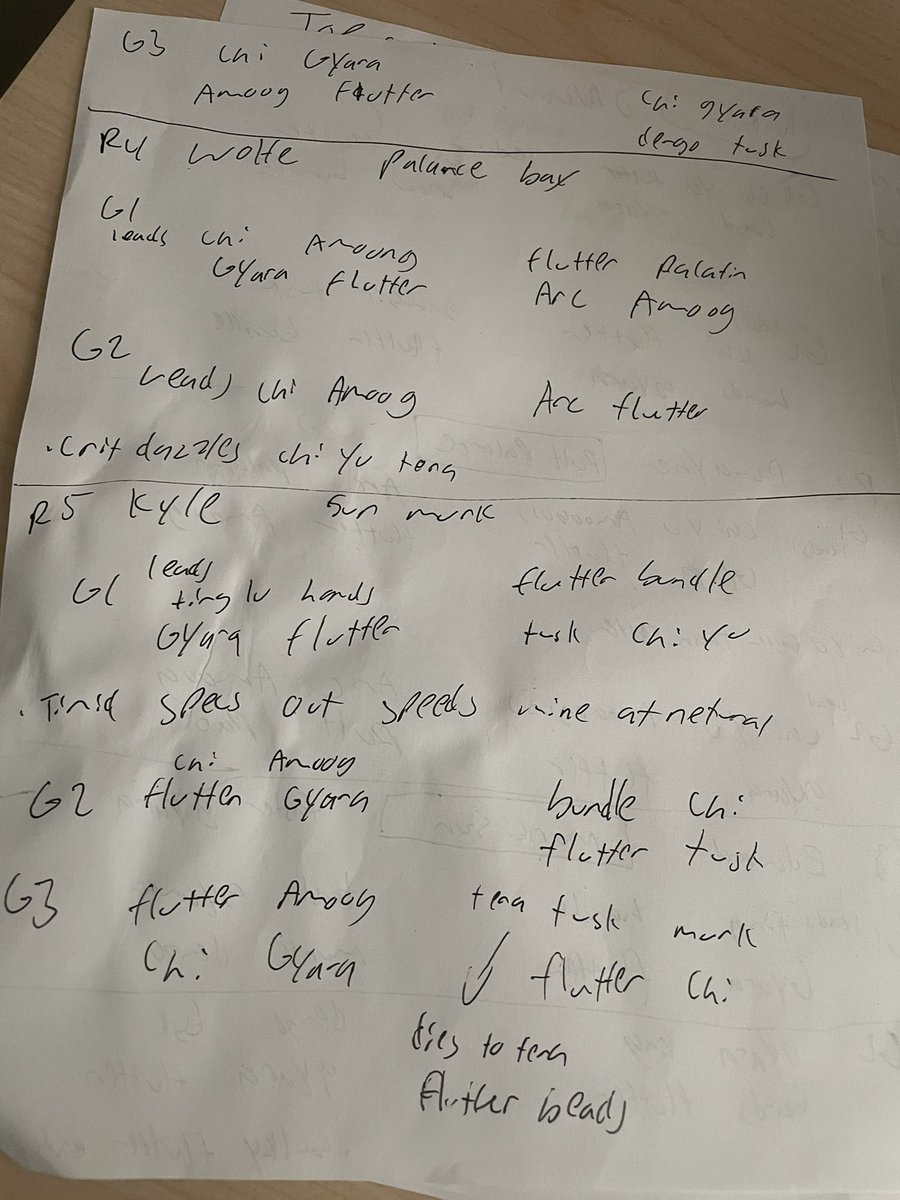 G3 Chi Gyara
Amoog Flutter
Chi gyara
dengo tusk
R4 Wolfe Palance bax
G1
leads Chi Amoong
Gyara flutter
flutter Palafin
Arc Amoog
G2
Leads Chi Amoog
Arc flutter
. Crit dazzles chi yu tera
R5 Kyle Sun murk
G1 leads
ting lu hands
Gyara flutter
flutter bundle
tusk Chi Yu
. Timid specs out speeds mine at netural
G2 Chi Amoog
flutter Gyara
bundle Chi
flutter tusk
G3 flutter Amoog
Chi Gyara
tera tusk murk
flutter Chi
dies to tera
flutter beads